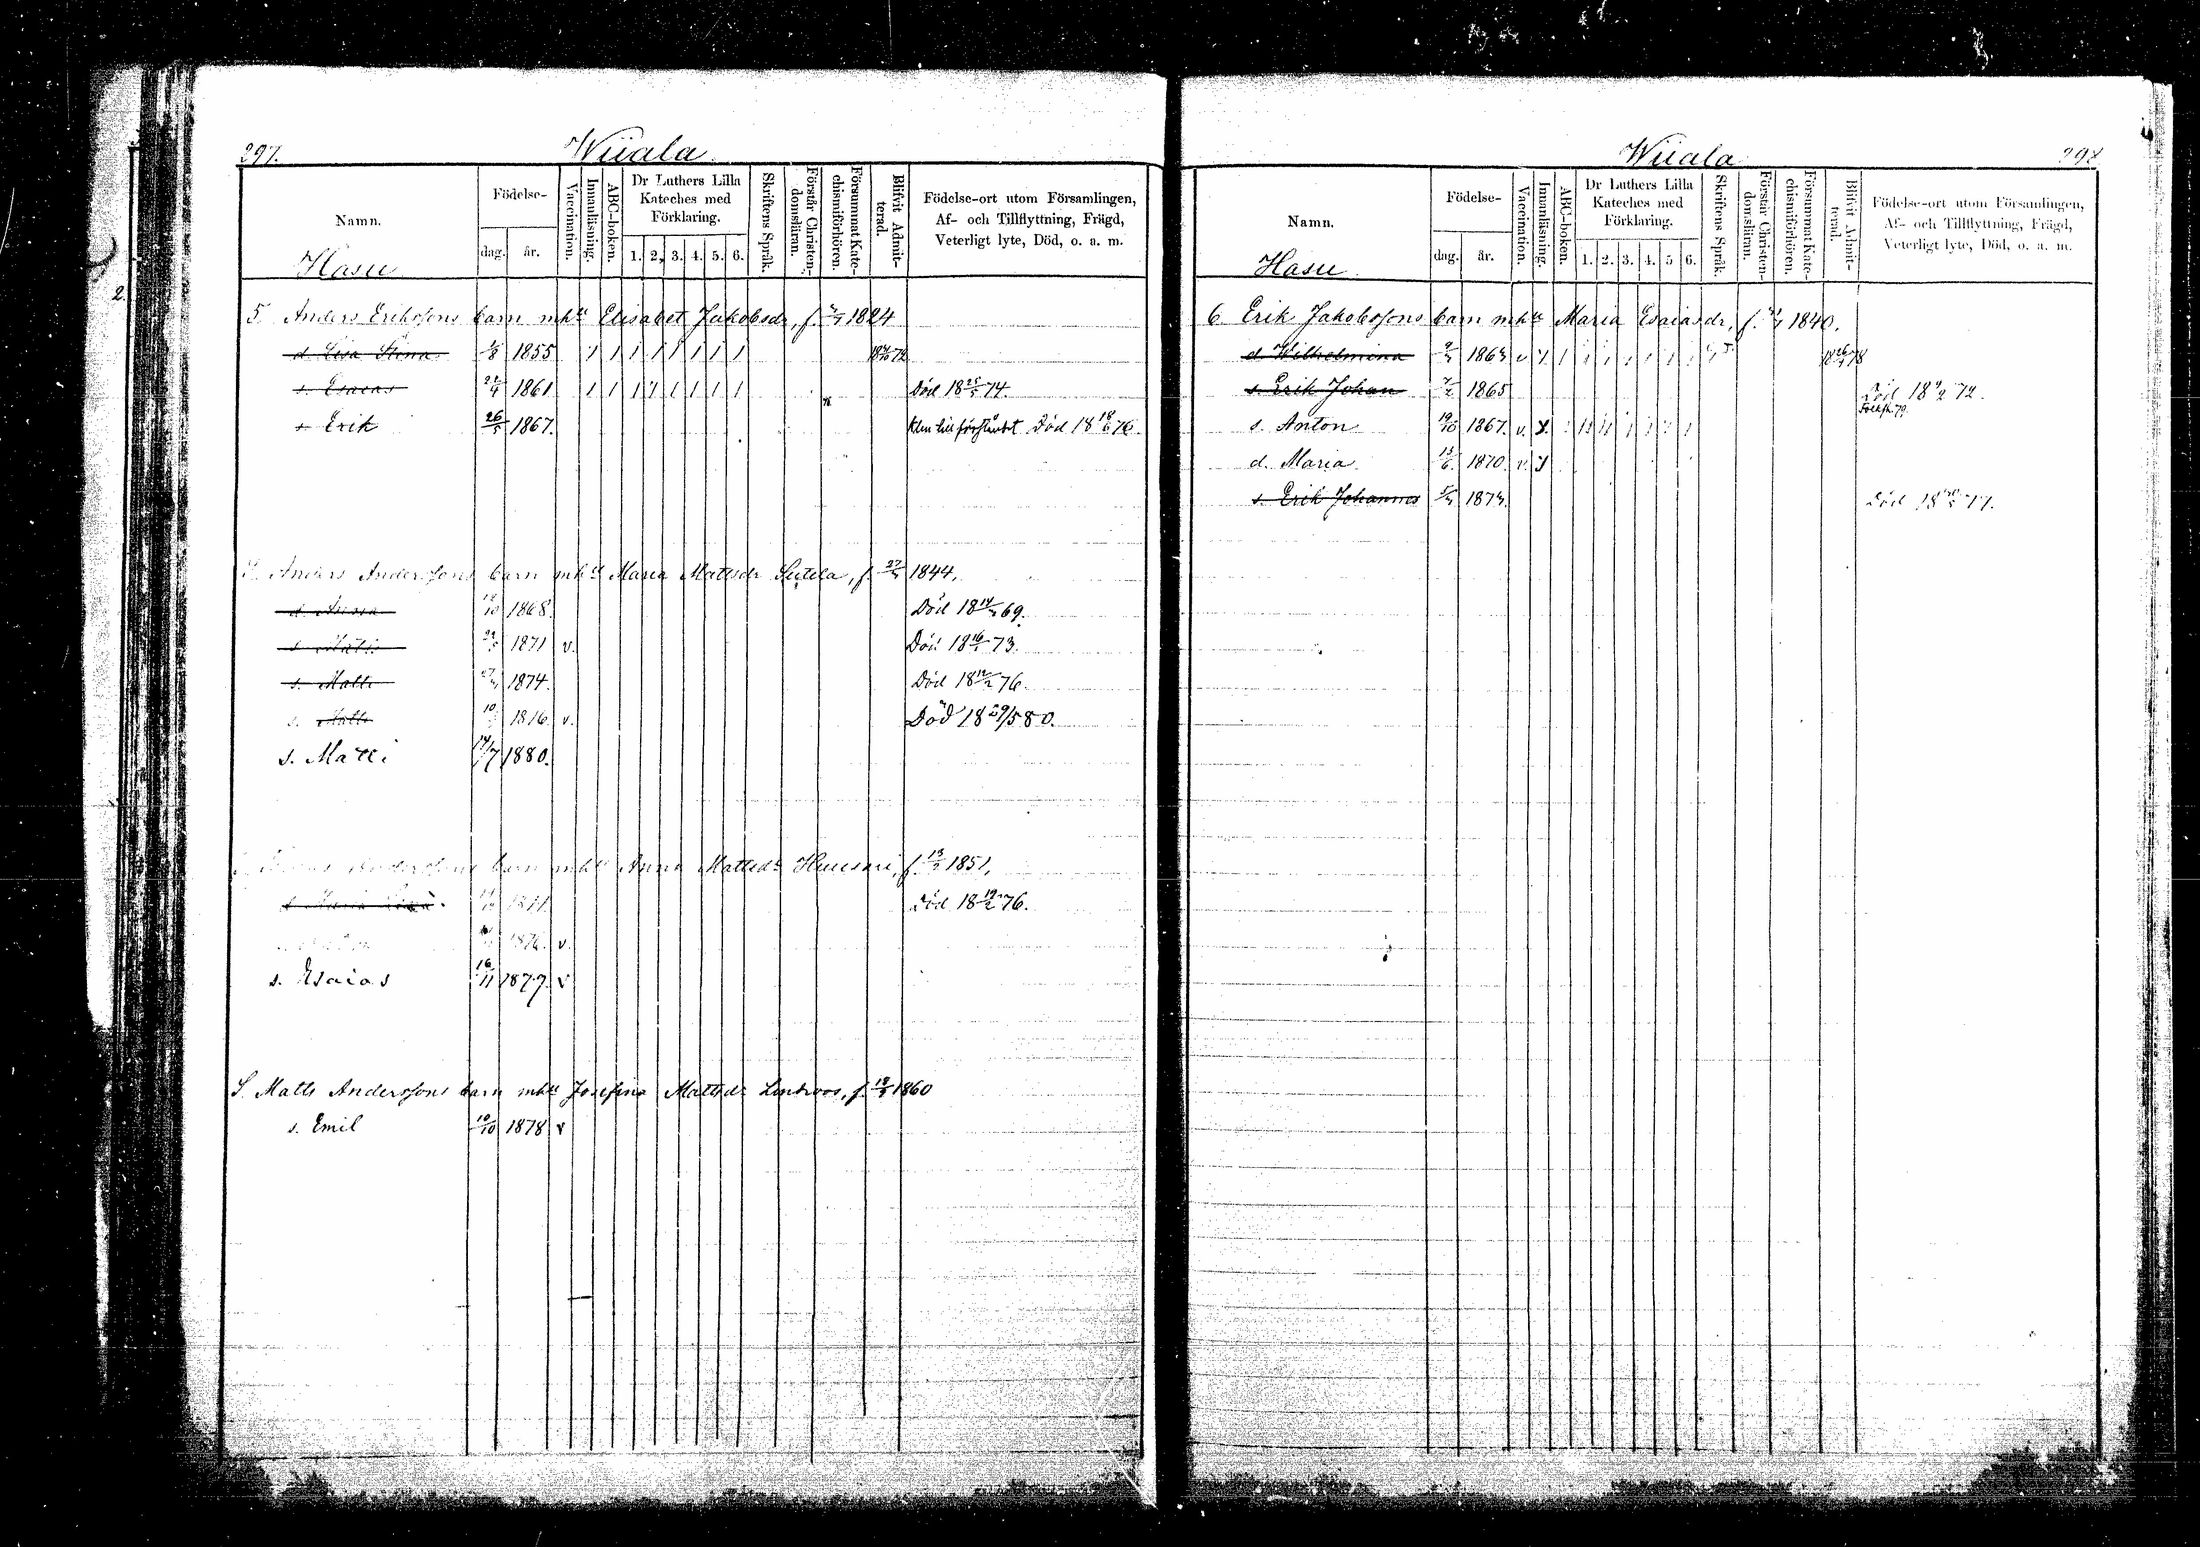 297.
Wiiala
Namn.
Födelse-
dag.
år.
Vaccination.
Innanläsning.
ABC-boken.
Dr Luthers Lilla
Kateches med
Förklaring.
1. 2. 3. 4. 5. 6.
Skriftens Språk.
Förstår Christen-
domsläran.
Försummat Kate-
chismiförhören.
Blifvit Admit-
terad.
Födelse-ort utom Församlingen,
Af- och Tillflyttning, Frägd,
Veterligt lyte, Död, o. a. m.
Hasu
5. Anders Erikssons barn mhu Elisabet Jakobsdr, f. 1824
d. Lisa Stina 1/8 1855 1 1 1 1 1 1 1 1 72
s. Esaias 1861 1 1 1 1 1 1 1 1 Död 18 74.
s. Erik 26/5 1867. Klen till förståndet Död 18 18/6 76.
S. Anders Anderssons barn mhu Maria Mattsdr Sutela, f. 27/ 1844.
d. Anna 10 1868. Död 18 14/ 69.
s. 1871 v. Död 18 16/ 73.
s. Matti 1874. Död 18 /2 76.
s. Matti 10 1876 v. Död 18 29/5 80.
s. Matti 14/7 1880.
Anderssons barn mhu Anna Mattsdr f. 13/2 1851,
d. Maria Död 18 19/2 76.
1876. v.
s. Esaias 16/11 1877. v
S. Matts Anderssons barn mhu Josefina Mattsdr Lindroos, f. 1860
s. Emil 10/10 1878 v
Wiiala
298
Namn.
Födelse-
dag.
år.
Vaccination.
Innanläsning.
ABC-boken.
Dr Luthers Lilla
Kateches med
Förklaring.
1. 2. 3. 4. 5 6.
Skriftens Språk.
Förstår Christen-
domsläran.
Försummat Kate-
chismiförhören.
Blifvit Admit-
terad.
Födelse-ort utom Församlingen,
Af- och Tillflyttning, Frägd,
Veterligt lyte, Död, o. a. m.
Hasu
6 Erik Jakobssons barn mhu Maria Esaiasdr, f. 1840.
d. Wilhelmina 1863 v 78
s. Erik Johan 7/2 1865 Död 18 /2 72.
s. Anton 19/10 1867. v.
d. Maria 13/6 1870 v.
s. Erik Johannes 1873. Död 18 77.